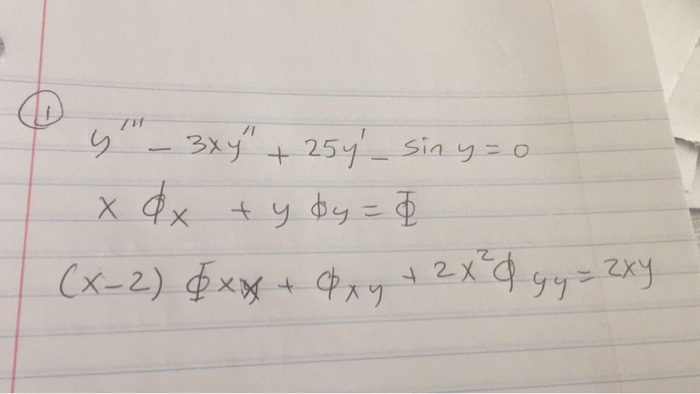 ①
y''' - 3xy'' + 25y' - sin y = 0
x ϕx + y ϕy = Φ
(x-2) Φxx + ϕxy + 2x²ϕyy = 2xy